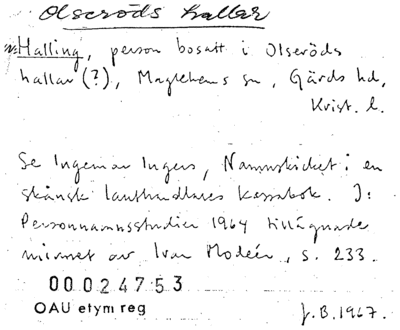 Olseröds hallar
Halling, person bosatt i Olseröds
hallar (?), Maglehems sn, Gärds hd,
Krist. l.
Se Ingemar Ingers, Namnskicket i en
skånsk lanthandlares kassabok. I:
Personnamnsstudier 1964 tillägnade
minnet av Ivar Modéer, s. 233.
00024753
OAU etym reg
J.B. 1967.